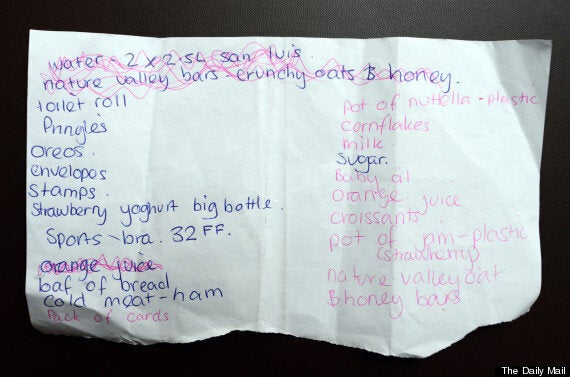 water 2 x 2.5L san luis.
nature valley bars crunchy oats & honey.
toilet roll
Pringles
Oreos.
envelopes
Stamps.
Strawberry yoghurt big bottle.
Sports-bra. 32 FF.
orange juice
baf of bread
cold meat-ham
Pack of cards
pot of nuttella-plastic
cornflakes
milk.
Sugar.
Baby oil
orange juice
croissants.
pot of jam-plastic
(strawberry)
nature valley oat
& honey bars.
The Daily Mail